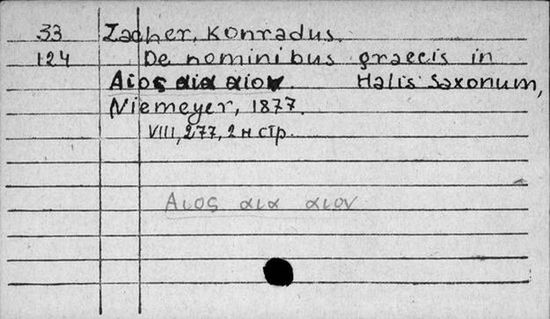 33 Zacher, Konradus.
124 De nominibus graecis in
Αιος αια αιον. Halis Saxonum,
Niemeyer, 1877.
VIII, 277, 2 н стр.
Αιος αια αιον